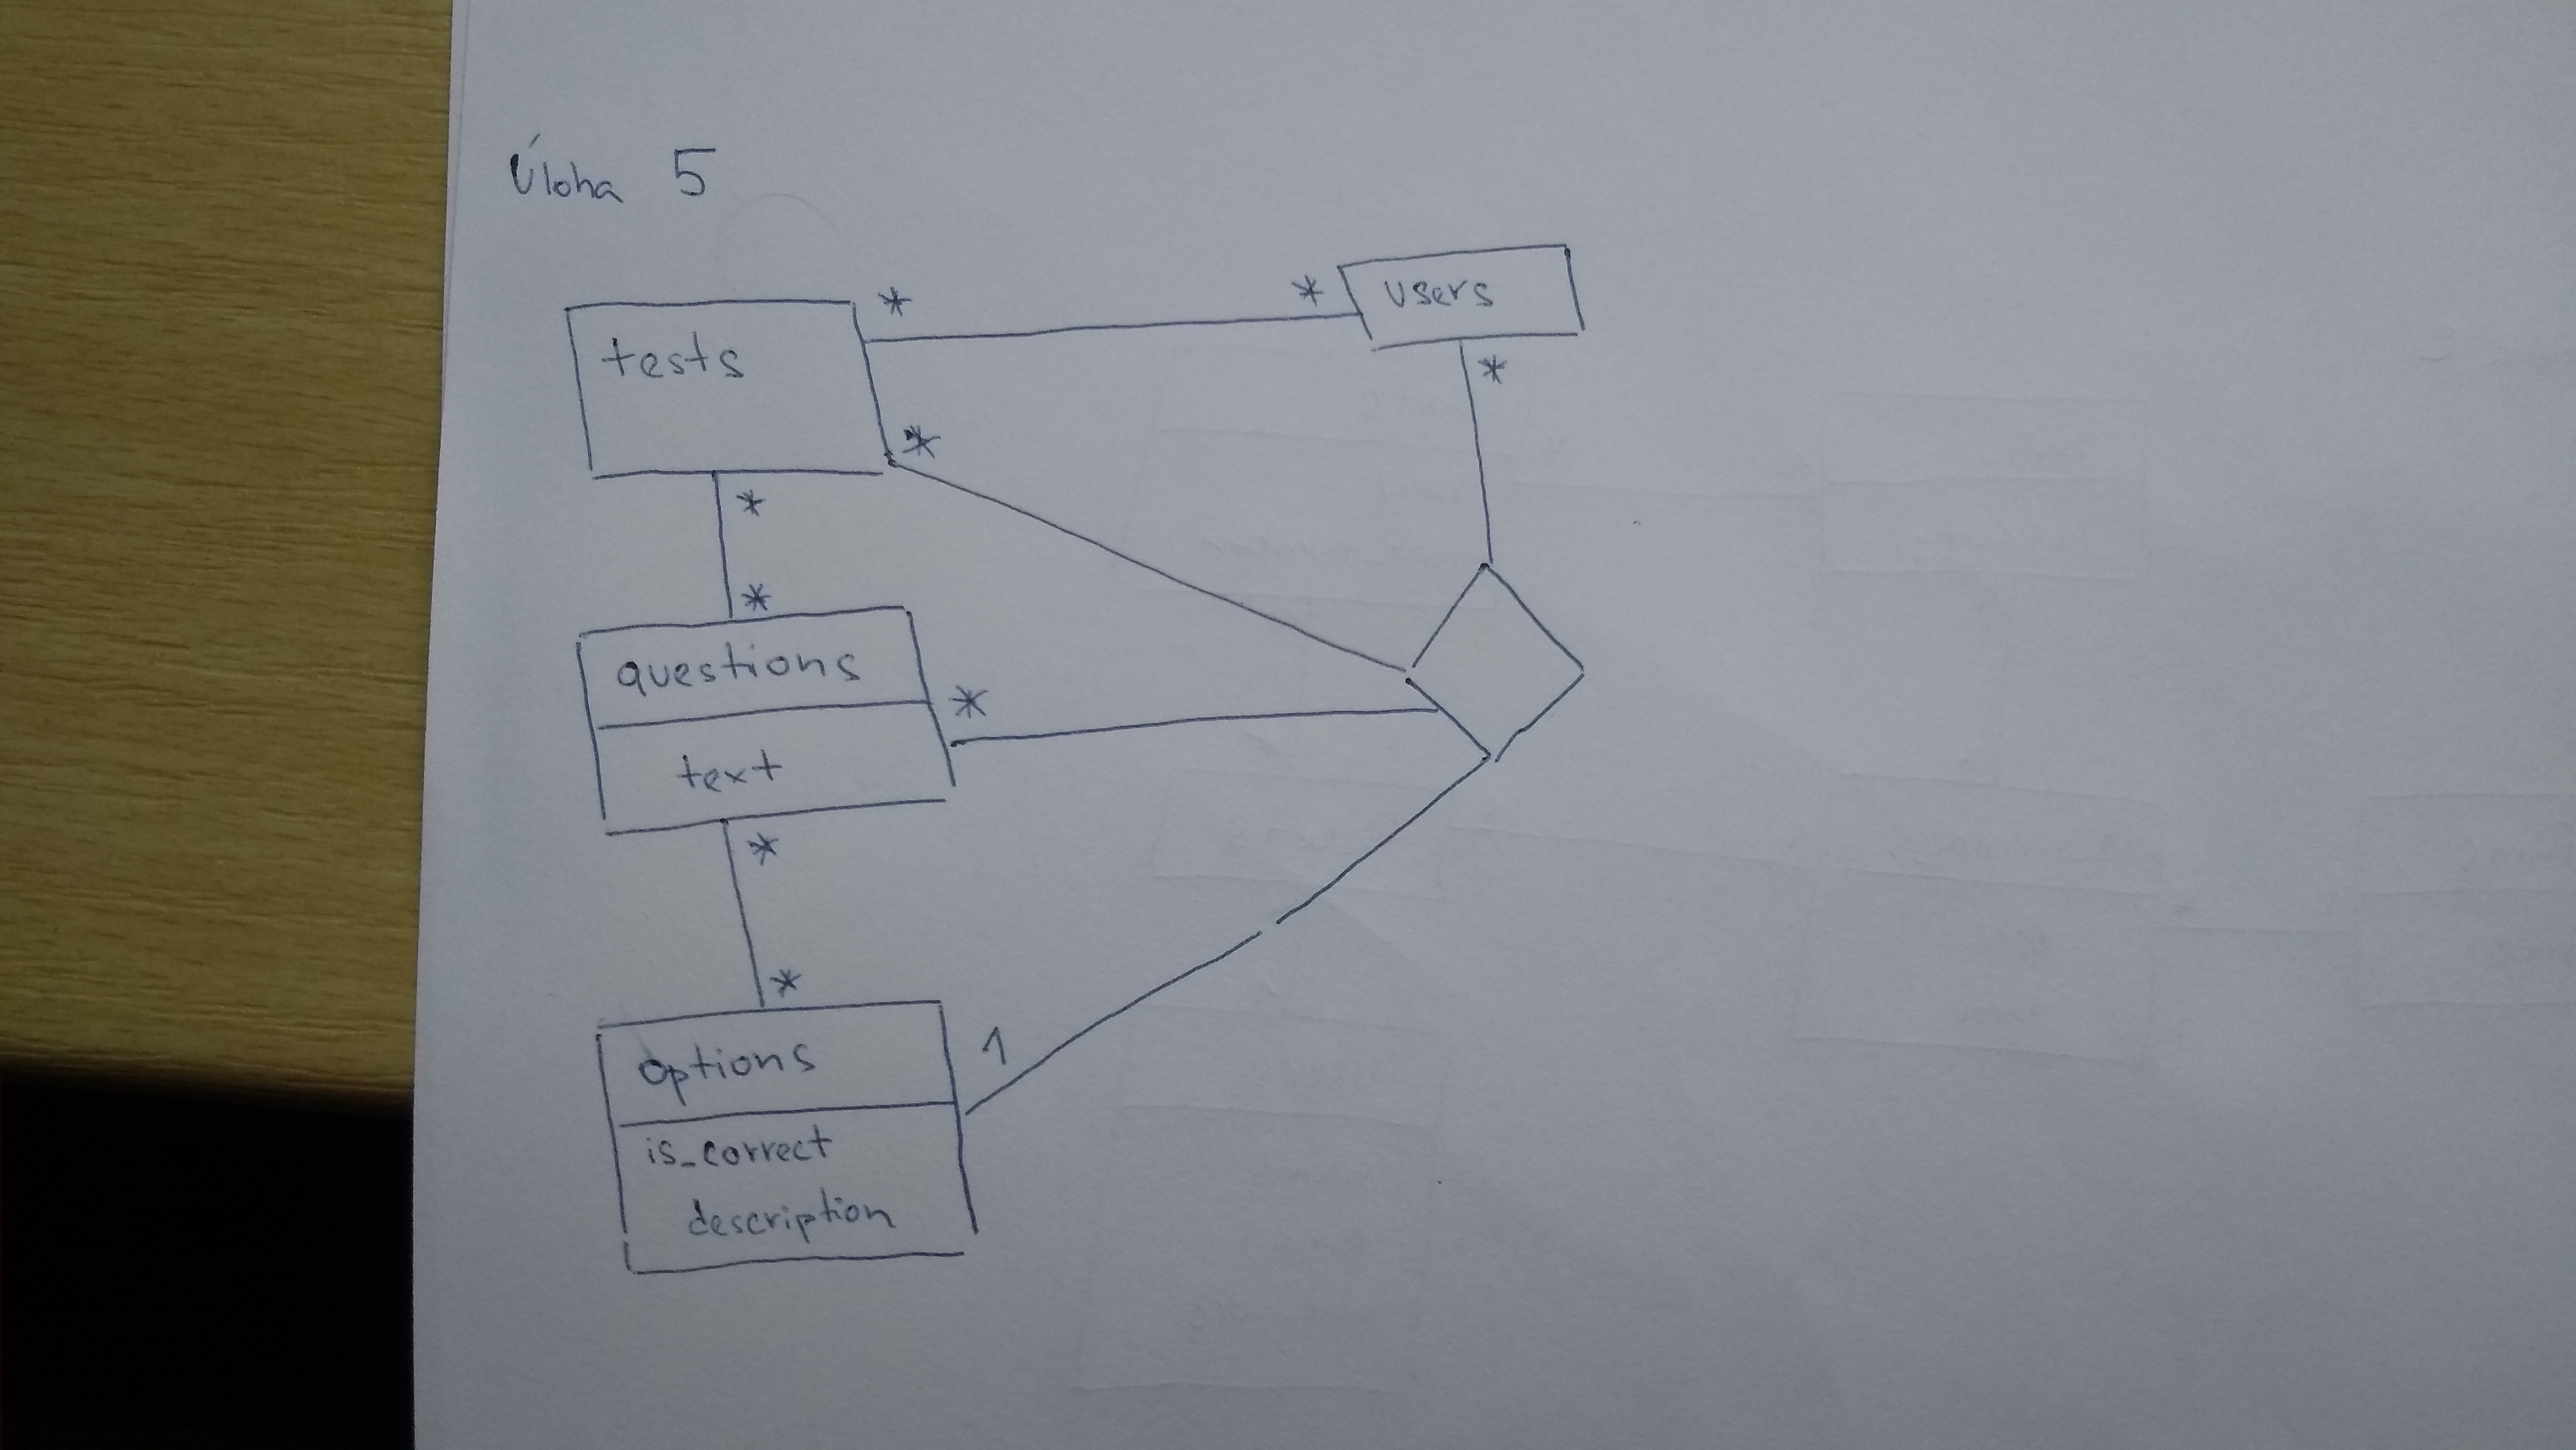 Úloha 5
* * users
tests
*
*
*
*
questions
*
text
*
*
1
options
is_correct
description